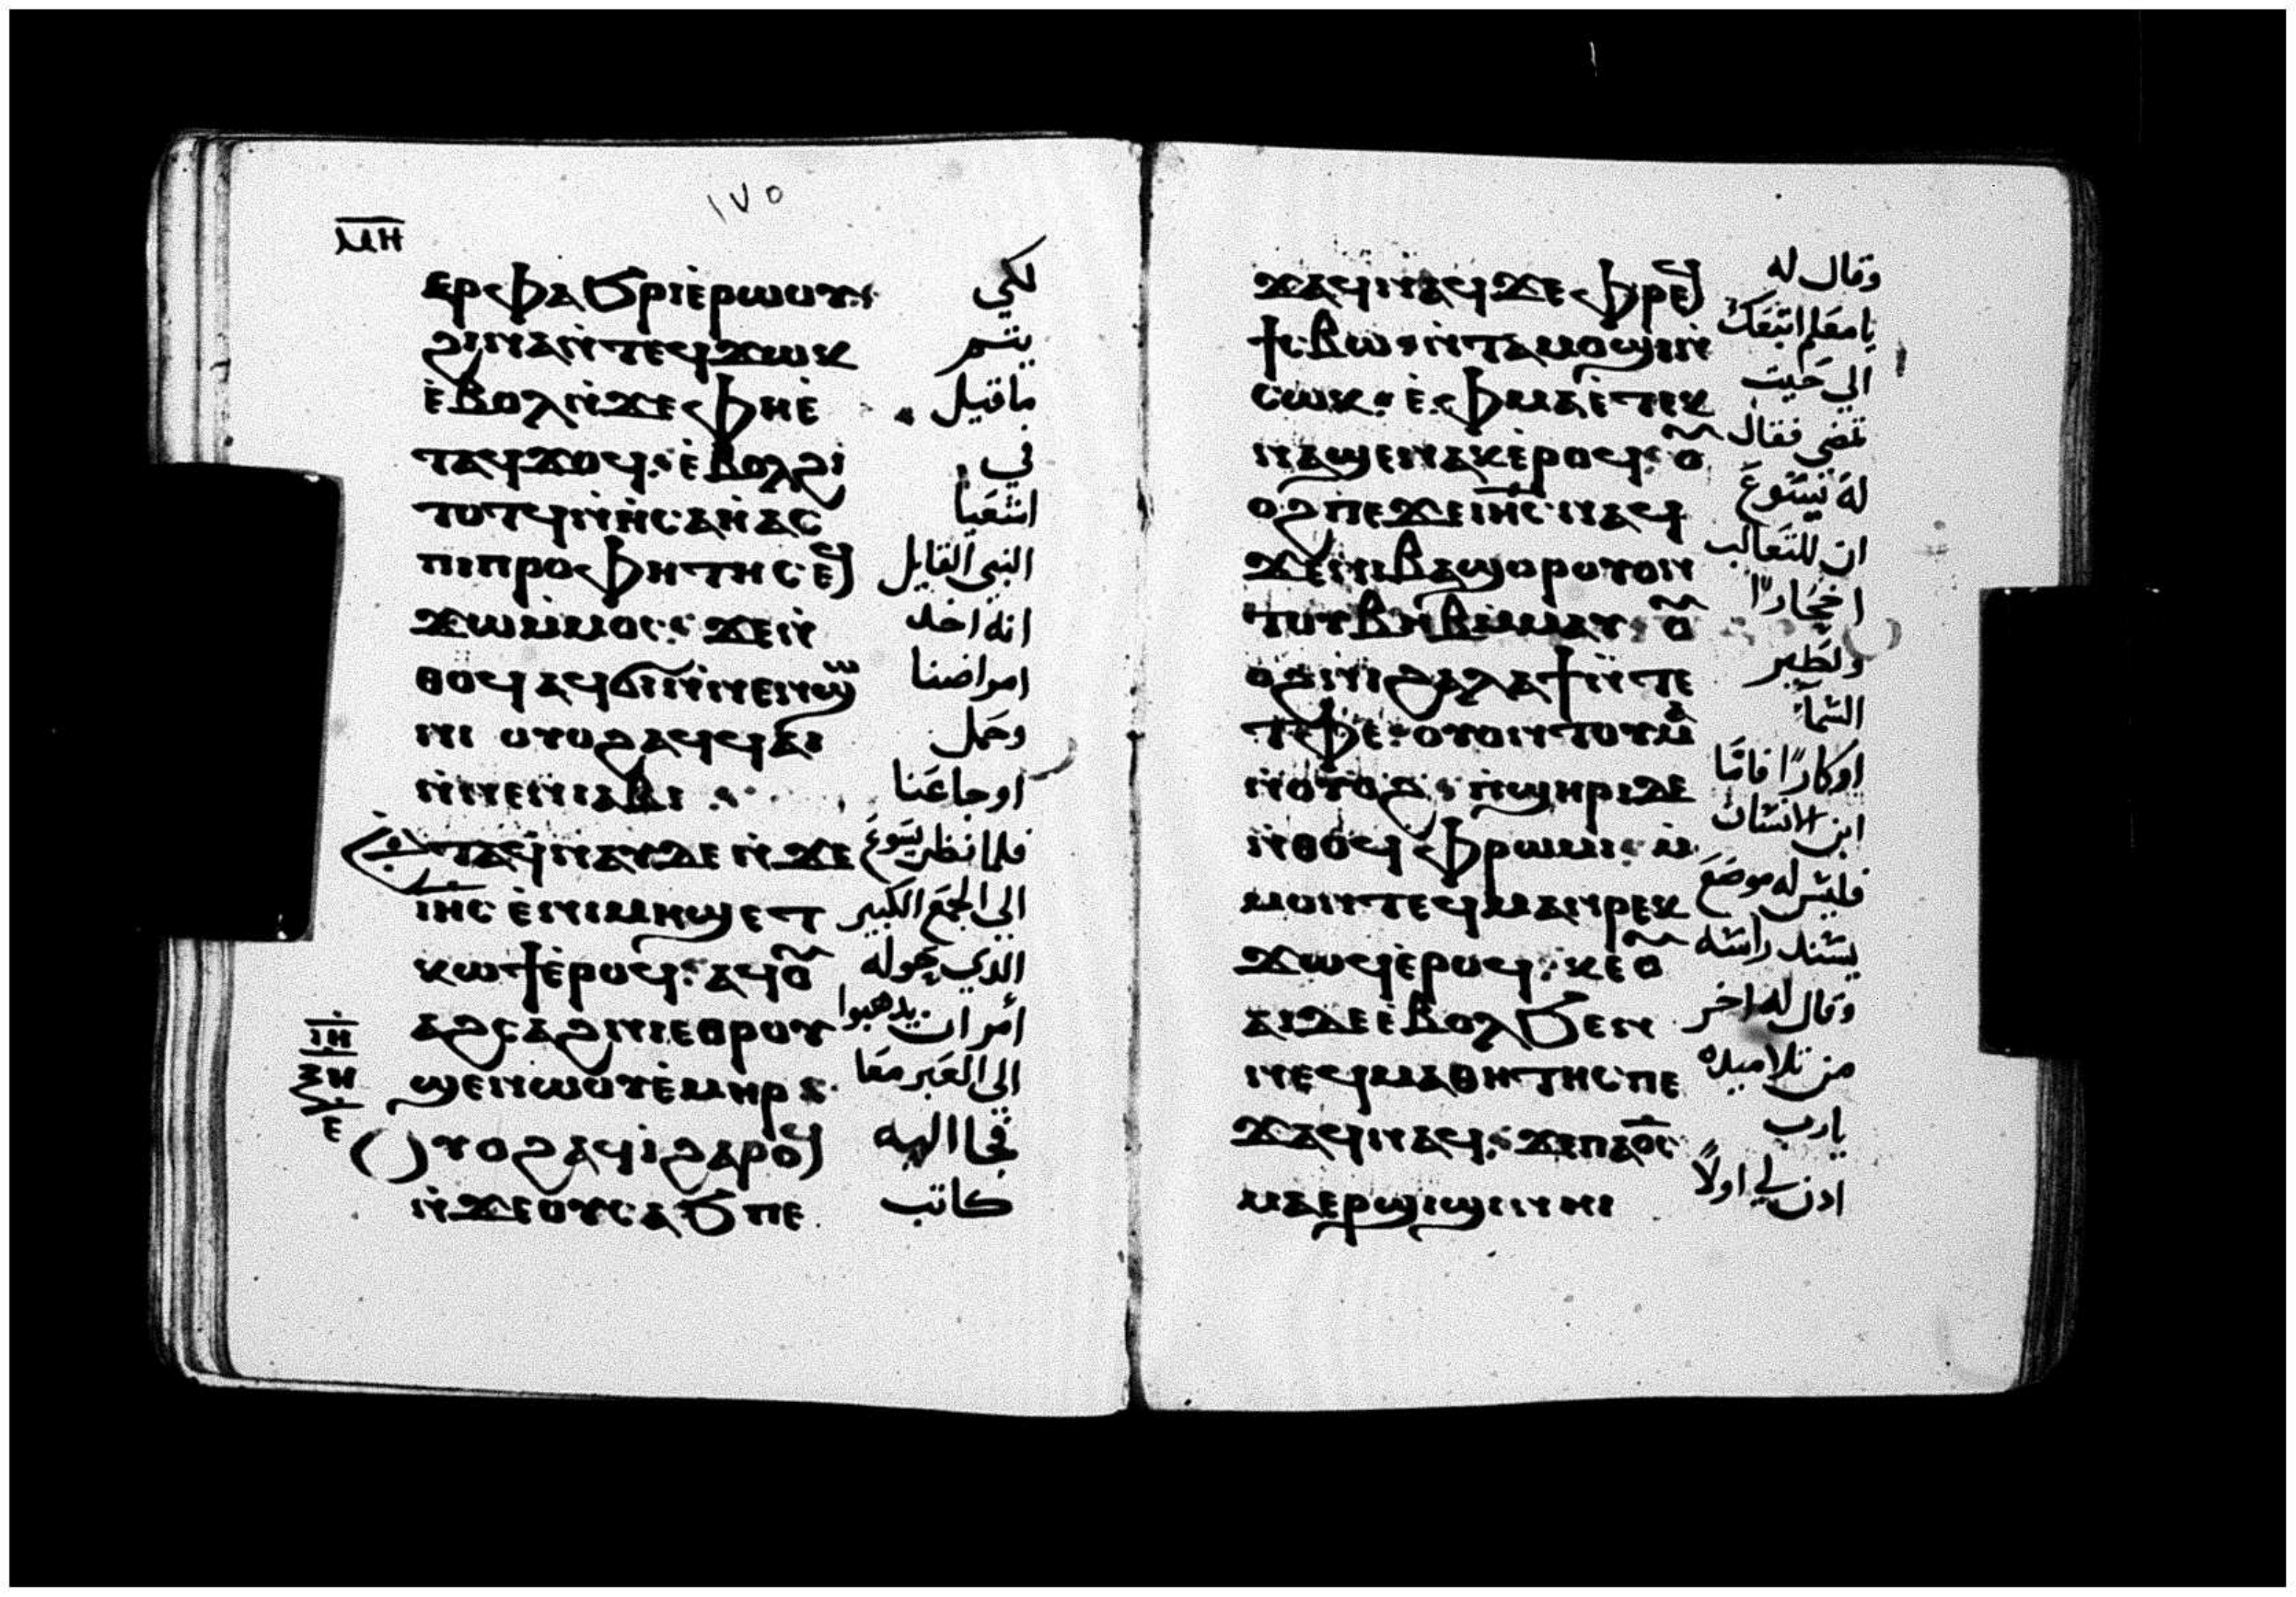 ١٧٥
ⲙⲏ
ⲉⲣⲫⲁϧⲣⲓⲉ̀ⲣⲱⲟⲩ: لكي
ϩⲓⲛⲁⲛ̀ⲧⲉϥϫⲱⲕ يتم
ⲉ̀ⲃⲟⲗⲛ̀ϫⲉⲫⲏⲉ̀ ماقيل
ⲧⲁϥϫⲟϥ: ⲉ̀ⲃⲟⲗϩⲓ في
ⲧⲟⲧϥⲛ̀ⲏ̀ⲥⲁⲏ̀ⲁⲥ اشعيا
ⲡⲓⲡⲣⲟⲫⲏⲧⲏⲥ ⲉϥ النبي القايل
ϫⲱⲙ̀ⲙⲟⲥ: ϫⲉⲛ̀ انه اخد
ⲑⲟϥ ⲁϥϭⲓⲛ̀ⲛⲉⲛϣⲱ امراضنا
ⲛⲓ ⲟⲩⲟϩ ⲁϥϥⲁⲓ وحمل
ⲛ̀ⲛⲉⲛⲓⲁⲃⲓ . اوجاعنا
ⲉⲧⲁϥⲛⲁⲩ ⲇⲉ ⲛ̀ϫⲉ فلما نظر يسوع
ⲓⲏⲥ ⲉ̀ⲛⲓⲙⲏϣ ⲉⲧ الى الجمع الكبير
ⲕⲱϯⲉ̀ⲣⲟϥ: ⲁϥⲟ̃ الدي حوله
ⲁϩⲥⲁϩⲛⲓⲉⲑⲣⲟⲩ امر ان يدهبوا
ⲓⲏ
ϣⲉⲛⲱⲟⲩⲉ̀ⲙⲏⲣ: الى العبر معا
ⲝⲏ
ⲉ
ⲟⲩⲟϩ ⲁϥⲓ̀ϩⲁⲣⲟϥ فجا اليه
ⲛ̀ϫⲉⲟⲩⲥⲁϧ ⲡⲉ كاتب
ϫⲁϥⲛⲁϥ ϫⲉ ⲫⲣⲉϥ وقال له
ϯⲥⲃⲱ: ⲛ̀ⲧⲁⲙⲟϣⲓⲛ̀ يا معلم اتبعك
ⲥⲱⲕ: ⲉ̀ⲫⲙⲁⲉ̀ⲧⲉⲕ الى حيث
ⲛⲁϣⲉⲛⲁⲕⲉ̀ⲣⲟϥ: ⲟ̃ تمضي فقال
ⲟϩ ⲡⲉϫⲉ ⲓⲏⲥ ⲛⲁϥ له يسوع
ϫⲉⲛⲓⲃⲁϣⲟⲣ ⲟⲩⲟⲛ ان للتعالب
ⲧⲟⲩⲃⲏⲃ ⲙ̀ⲙⲁⲩ: ⲟ̃ اجحارًا
ⲟϩ ⲛⲓϩⲁⲗⲁϯ ⲛ̀ⲧⲉ ولطير
ⲧⲫⲉ: ⲟⲩⲟⲛⲧⲟⲩⲙⲁ السما
ⲛ̀ⲟⲩⲟϩ: ⲡ̀ϣⲏⲣⲓ ⲇⲉ اوكارًا فاما
ⲛ̀ⲑⲟϥ ⲙ̀ⲫⲣⲱⲙⲓ: ⲙ̀ ابن الانسان
ⲙⲟⲛⲧⲉϥⲙⲁⲛ̀ⲣⲉⲕ فليس له موضع
ϫⲱϥⲉ̀ⲣⲟϥ: ⲕⲉⲟ̃ يسند راسه
ⲁⲓ ⲇⲉ ⲉ̀ⲃⲟⲗϧⲉⲛ وقال له اخر
ⲛⲉϥⲙⲁⲑⲏⲧⲏⲥ ⲡⲉ من تلاميده
ϫⲁϥⲛⲁϥ: ϫⲉⲡⲁⲟ̅ⲥ̅ يارب
ⲙⲁⲉⲣϣⲓϣⲓⲛⲏⲓ ادن لي اولاً